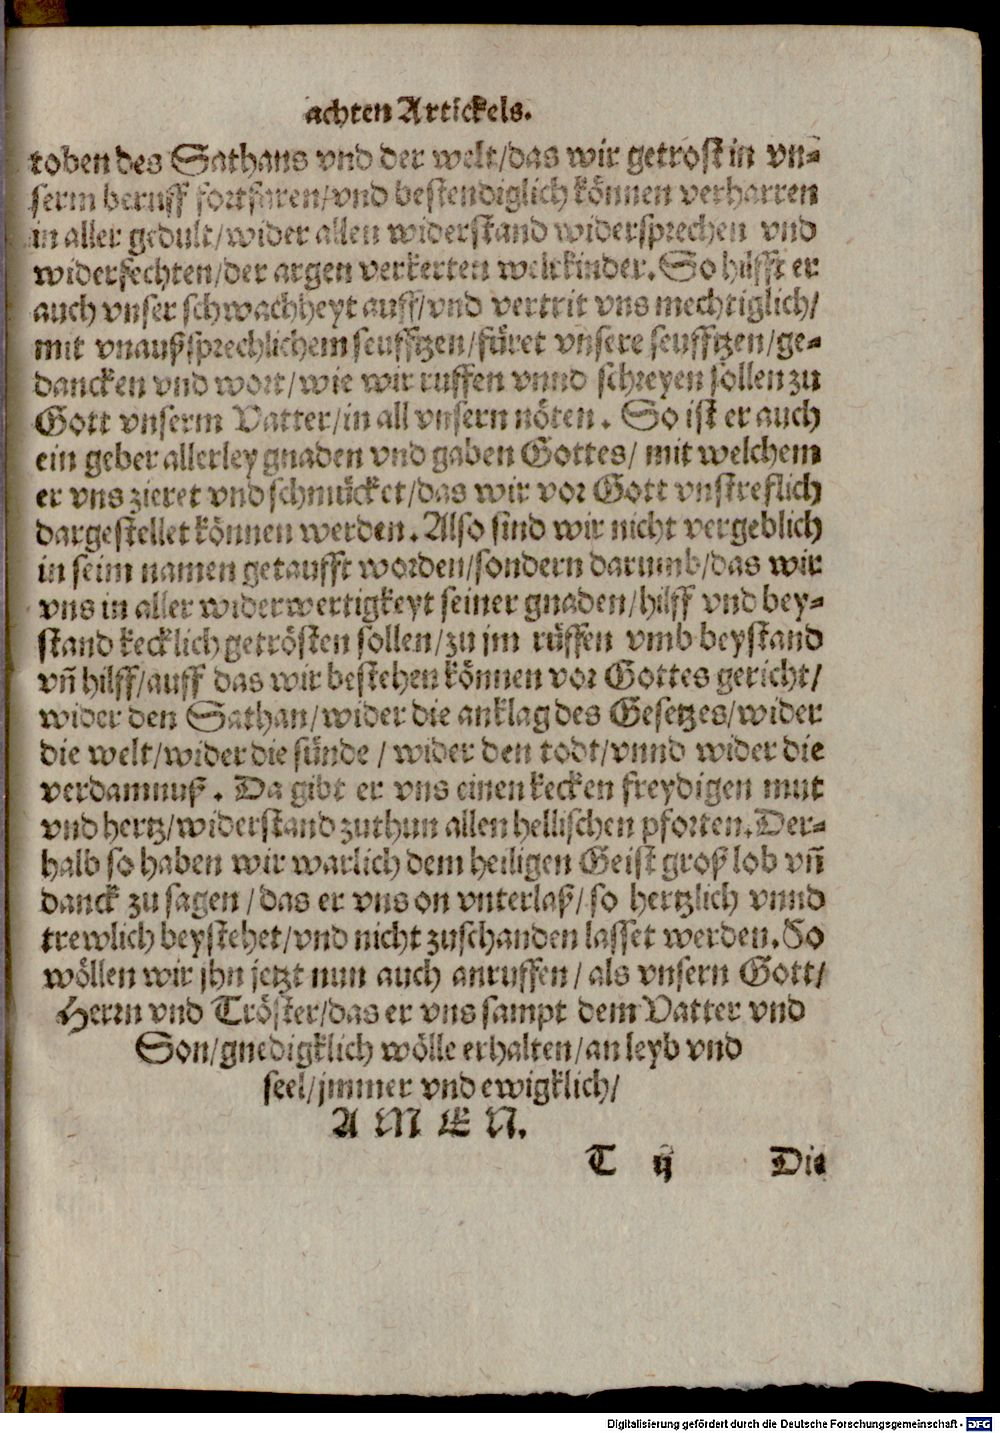 achten Artickels.
toben des Sathans vnd der welt/das wir getrost in vn-
serm beruff fortfaren/vnd bestendiglich können verharren
in aller gedult/wider allen widerstand widersprechen vnd
widerfechten/der argen verkerten weltkinder. So hilfft er
auch vnser schwachheyt auff/vnd vertrit vns mechtiglich/
mit vnaußsprechlichem seufftzen/füret vnsere seufftzen/ge-
dancken vnd wort/wie wir ruffen vnnd schreyen sollen zu
Gott vnserm Vatter/in all vnsern nöten. So ist er auch
ein geber allerley gnaden vnd gaben Gottes/ mit welchem
er vns zieret vnd schmücket/das wir vor Gott vnstreflich
dargestellet können werden. Also sind wir nicht vergeblich
in seim namen getaufft worden/sondern darumb/das wir
vns in aller widerwertigkeyt seiner gnaden/hilff vnd bey-
stand kecklich getrösten sollen/zu jm rüffen vmb beystand
vñ hilff/auff das wir bestehen können vor Gottes gericht/
wider den Sathan/wider die anklag des Gesetzes/wider
die welt/wider die sünde / wider den todt/vnnd wider die
verdamnuß. Da gibt er vns einen kecken freydigen mut
vnd hertz/widerstand zuthun allen hellischen pforten. Der-
halb so haben wir warlich dem heiligen Geist groß lob vñ
danck zu sagen /das er vns on vnterlaß/so hertzlich vnnd
trewlich beystehet/vnd nicht zuschanden lasset werden. So
wöllen wir jhn jetzt nun auch anruffen/ als vnsern Gott/
Herrn vnd Tröster/das er vns sampt dem Vatter vnd
Son/gnedigklich wölle erhalten/an leyb vnd
seel/jmmer vnd ewigklich/
A M E N.
T ij Die
Digitalisierung gefördert durch die Deutsche Forschungsgemeinschaft - DFG